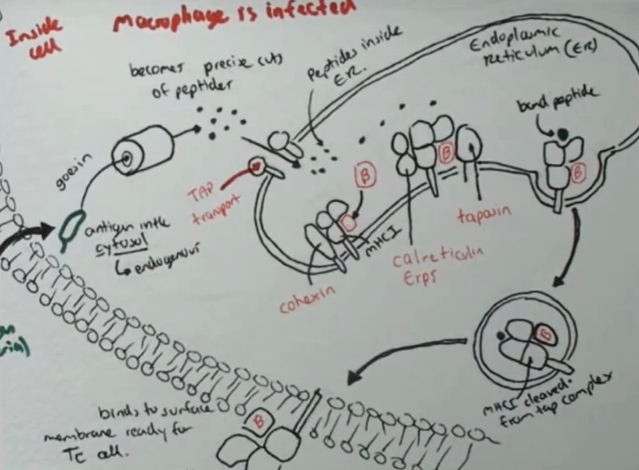 Macrophage is infected
Inside
cell
becomes precise cuts
of peptides
Peptides inside
ER.
Endoplasmic
Reticulum (ER)
bond peptide
goesin
TAP
transport
antigen in the
cytosol
↳ endogenous
B
B
B
MHCI
cohexin
calreticulin
Erp5
tapasin
B
MHCI cleaved.
from tap complex
binds to surface
membrane ready for
Tc cell.
B